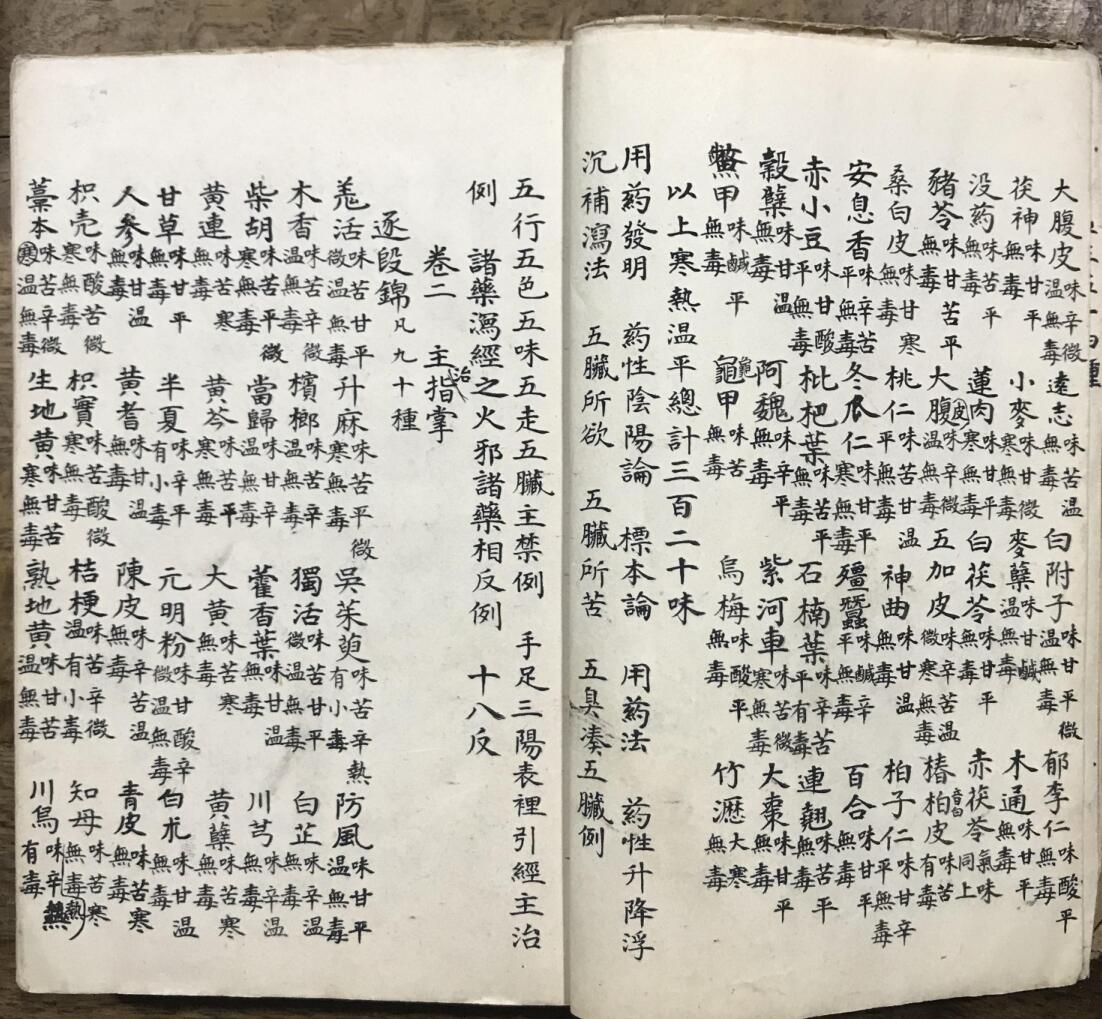 大腹皮味辛微温無毒 遠志味苦温無毒 白附子味甘平微温無毒 郁李仁味酸平無毒
茯神味甘平無毒 小麥味甘微寒無毒 麥蘖味甘鹹温無毒 木通味甘平無毒
没药味苦平無毒 蓮肉味甘平寒無毒 白茯苓味甘平無毒 赤茯苓氣味同上
豬苓味甘苦平無毒 大腹皮味辛微温無毒 五加皮味辛苦温微寒無毒 椿柏皮味苦有毒
桑白皮味甘寒無毒 桃仁味苦甘温平無毒 神曲味甘温無毒 柏子仁味甘辛平無毒
安息香味辛苦平無毒 冬瓜仁味甘平寒無毒 殭蠶味鹹辛平無毒 百合味甘平無毒
赤小豆味甘酸平無毒 枇杷葉味苦平無毒 石楠葉味辛苦平有毒 連翹味苦平無毒
穀蘖味甘温無毒 阿魏味辛平無毒 紫河車味苦微寒無毒 大棗味甘平無毒
鱉甲味鹹平無毒 龜甲味苦無毒 烏梅味酸平無毒 竹瀝大寒無毒
以上寒熱温平總計三百二十味
用药發明 药性陰陽論 標本論 用药法 药性升降浮
沉補瀉法 五臟所欲 五臟所苦 五臭湊五臟例
五行五色五味五走五臟主禁例 手足三陽表裡引經主治
例 諸藥瀉經之火邪諸藥相反例 十八反
卷二 主治指掌
逐段錦凡九十種
羗活味苦甘平微温無毒 升麻味苦平微寒無毒 吳茱萸味苦辛熱有小毒 防風味甘平温無毒
木香味苦辛微温無毒 檳榔味苦辛温無毒 獨活味苦甘平微温無毒 白芷味辛温無毒
柴胡味苦平微寒無毒 當歸味甘辛温無毒 藿香葉味甘温無毒 川芎味辛温無毒
黄連味苦寒無毒 黄芩味苦平寒無毒 大黄味苦寒無毒 黄蘖味苦寒無毒
甘草味甘平無毒 半夏味辛平有小毒 元明粉味甘酸辛微温無毒 白朮味甘温無毒
人参味甘温無毒 黄耆味甘温無毒 陳皮味辛苦温無毒 青皮味苦寒無毒
枳壳味酸苦微寒無毒 枳實味苦酸微寒無毒 桔梗味苦辛微温有小毒 知母味苦寒無毒
藁本味苦辛微寒温無毒 生地黄味甘苦寒無毒 熟地黄味甘苦温無毒 川烏味辛熱有毒